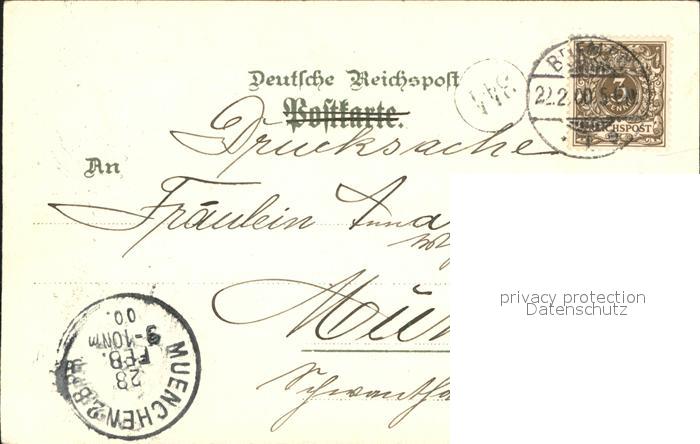 Deutsche Reichspost
Postkarte.
Drucksache
An
Fräulein Anna
Mün
Schwantha
BREMEN
22.2.00.5-6N
3
REICHSPOST
MUENCHEN 2.B.P.
28
FEB.
9-10Nm
00.
privacy protection
Datenschutz